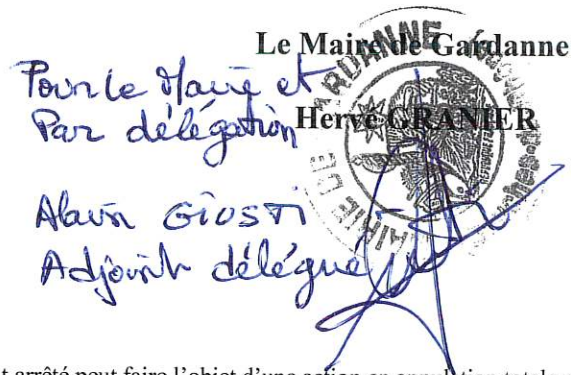 Le Maire de Gardanne
Pour le Maire et
Par délégation
Hervé GRANIER
Alain GIUSTI
Adjoint délégué
t arrêté peut faire l'objet d'une action en annulation totale